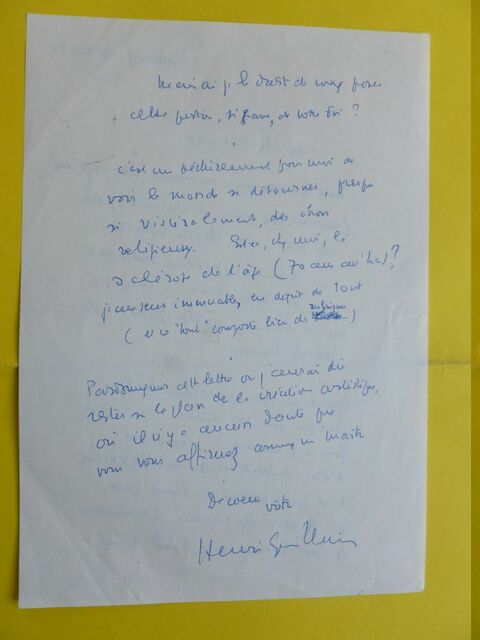 Mais ai-je le droit de vous poser
cette question, si grave, de votre Foi ?
c'est un déchirement pour moi de
voir le monde se détourner, presque
si viscéralement, des choses
religieuses. Est-ce, chez moi, la
sclérose de l'âge (70 ans                ) ?
                immuable, en dépit de tout
(et ce "tout" comporte bien des rubriques)
Pardonnez-moi cette lettre où j'aurais dû
rester sur le plan de la création artistique,
où il n'y a aucun doute que
vous vous affirmez comme un maître
De coeur
votre
Henri Guillemin